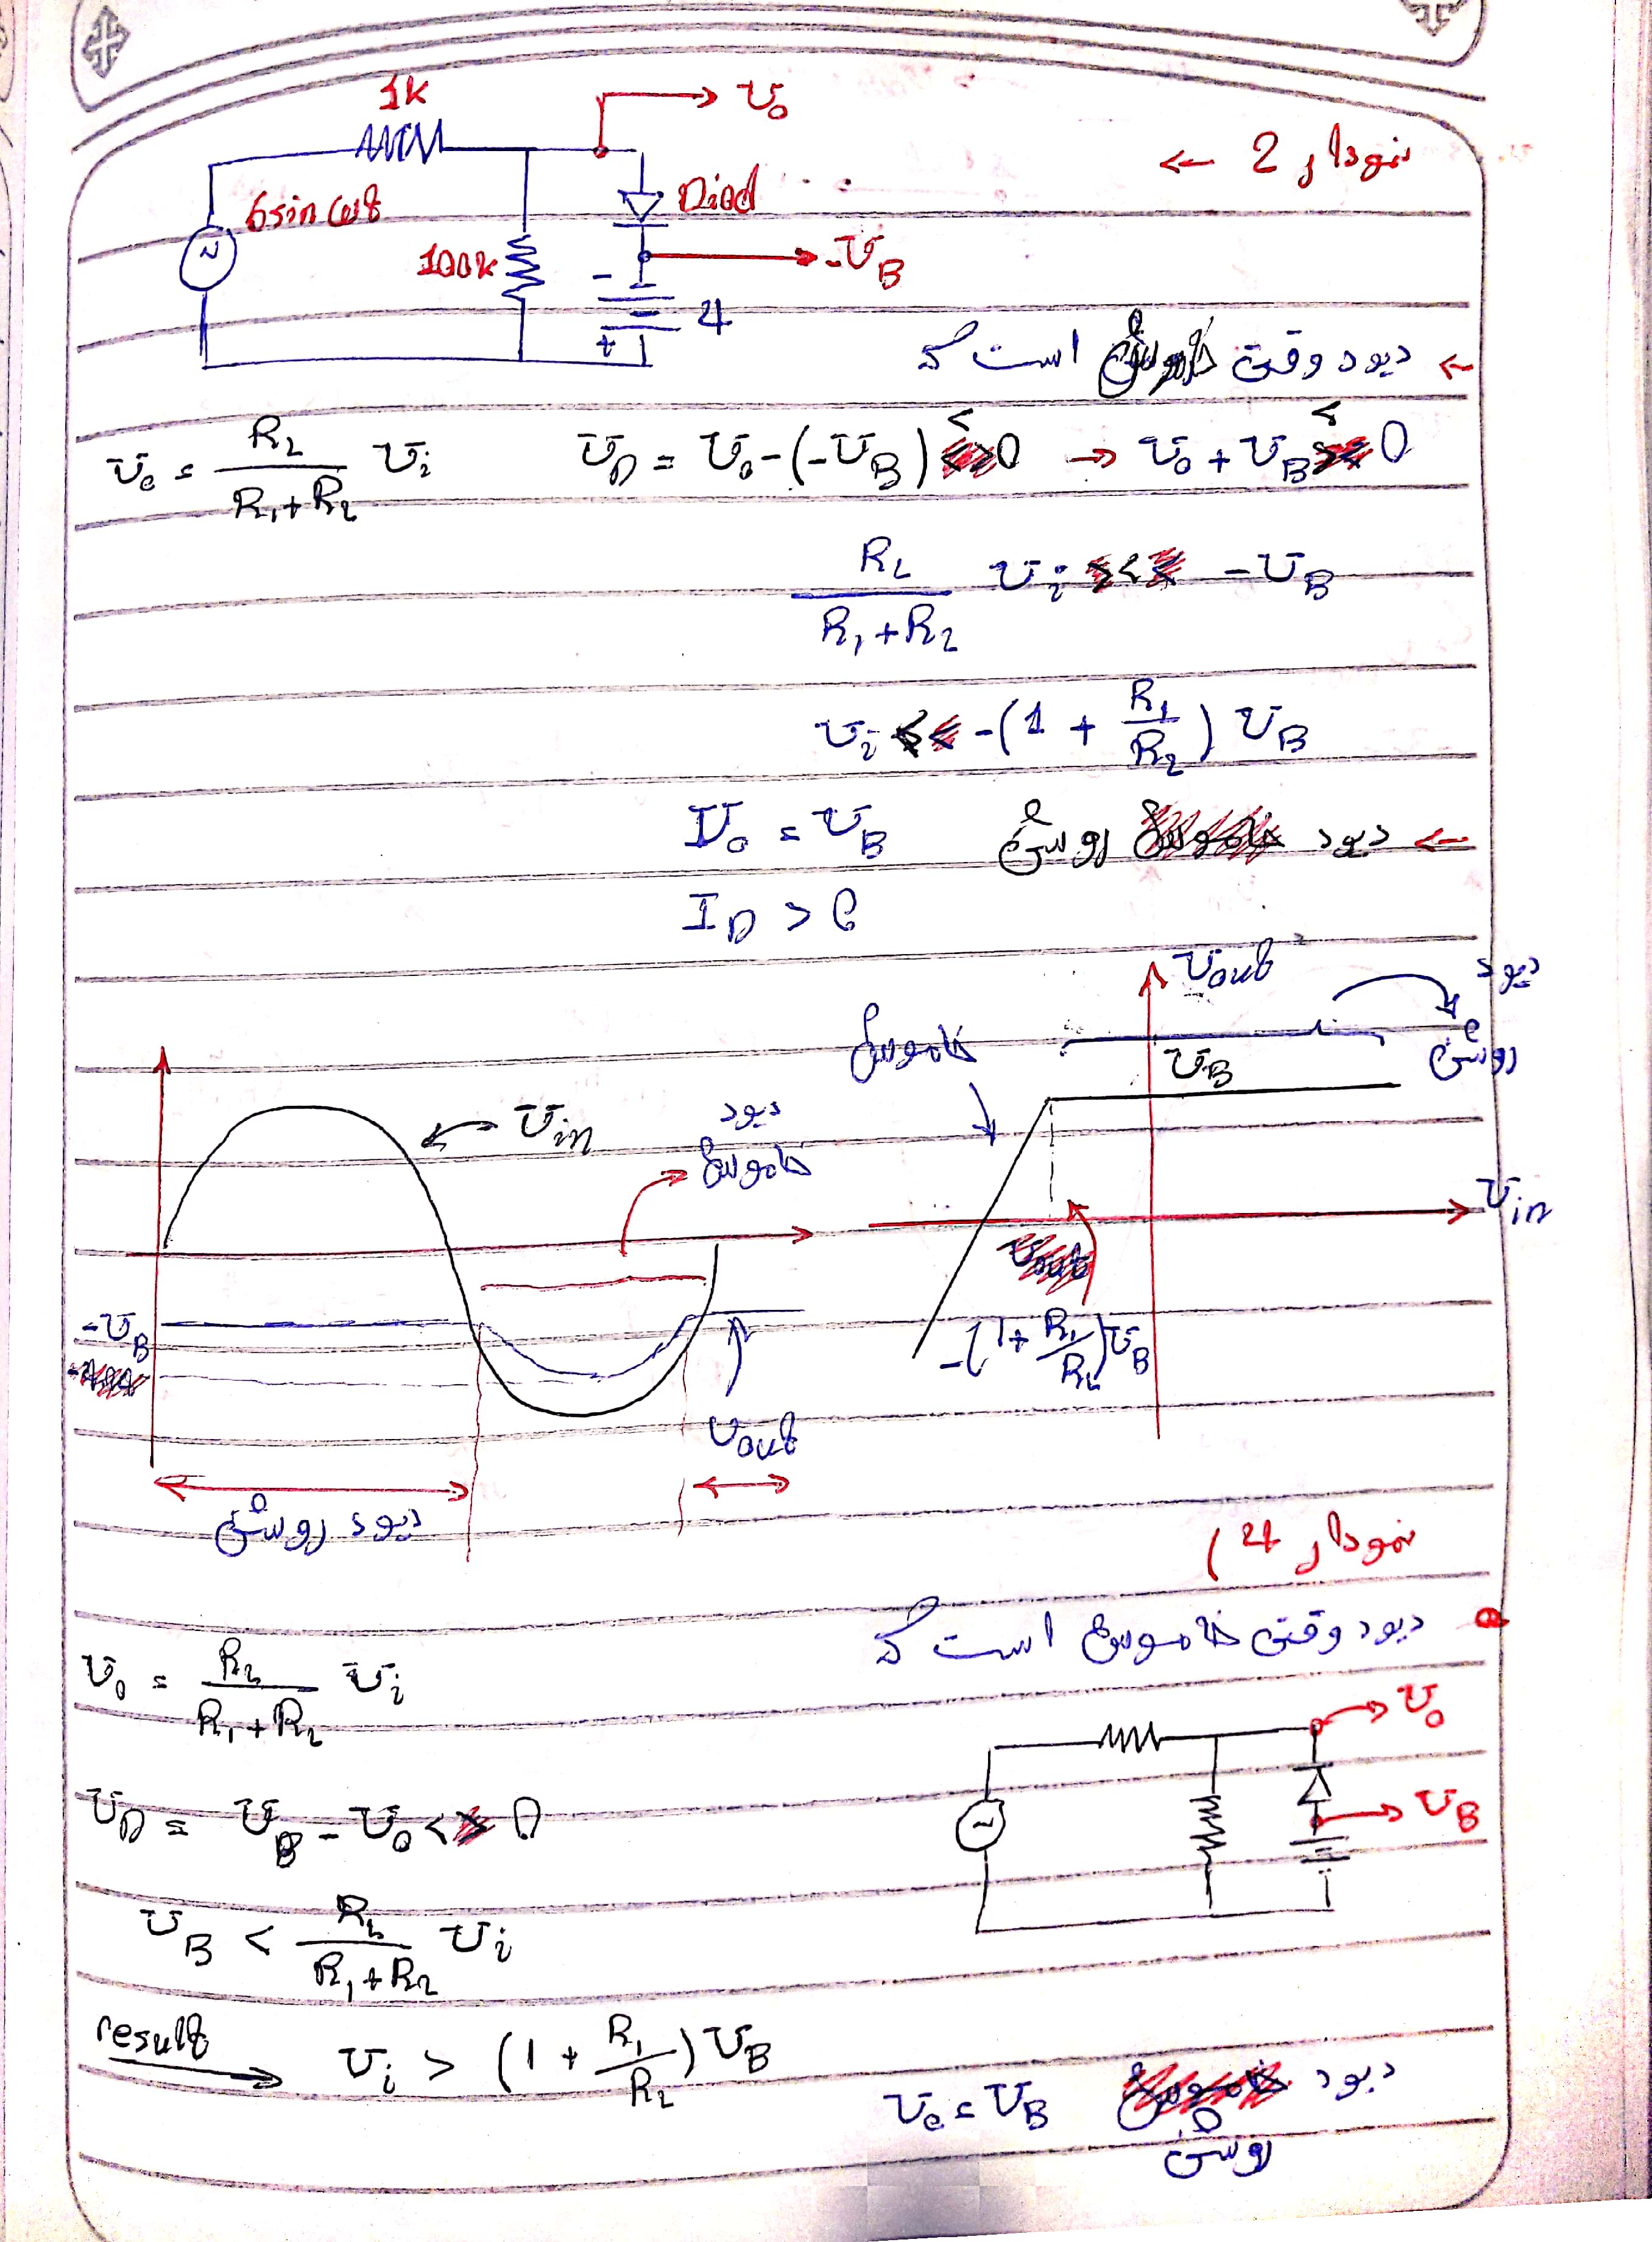 نمودار 2 ←
1k
v₀
6 sin ωt
Diod
100k
-V_B
-
4
+
← دیود وقتی خاموش است که
v₀ = R₂/(R₁+R₂) vᵢ    V_D = V₀ - (-V_B) < 0 → V₀ + V_B < 0
R₂/(R₁+R₂) vᵢ < -V_B
vᵢ < -(1 + R₁/R₂) V_B
← دیود روشن    V₀ = V_B
I_D > 0
Vout
دیود روشن
خاموش
V_B
Vin
-(1 + R₁/R₂) V_B
Vin
دیود خاموش
-V_B
Vout
دیود روشن
نمودار 4)
دیود وقتی خاموش است که
V₀ = R₂/(R₁+R₂) Vᵢ
V₀
V_B
V_D = V_B - V₀ < 0
V_B < R₂/(R₁+R₂) Vᵢ
result → Vᵢ > (1 + R₁/R₂) V_B
دیود روشن    V₀ = V_B